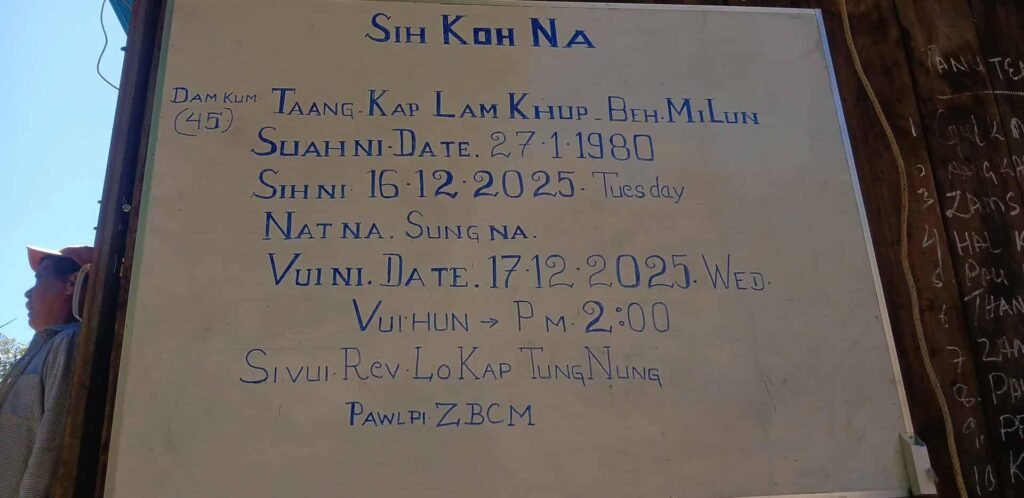 SIH KOH NA
DAM KUM. TAANG-KAP LAM KHUP-BEH.MILUN
(45)
SUAHNI.DATE. 27.1.1980
SIHNI 16.12.2025. Tuesday
NATNA. SUNGNA.
VUINI. DATE. 17.12.2025. WED.
VUI.HUN → PM. 2:00
SIVUI.REV.LO KAP TUNG NUNG
PAWLPI.Z.BCM
TANU
1
2
3 ZAMS
4 HAL K
5
6 THAN
7 ZAN
8.
9.
10 K